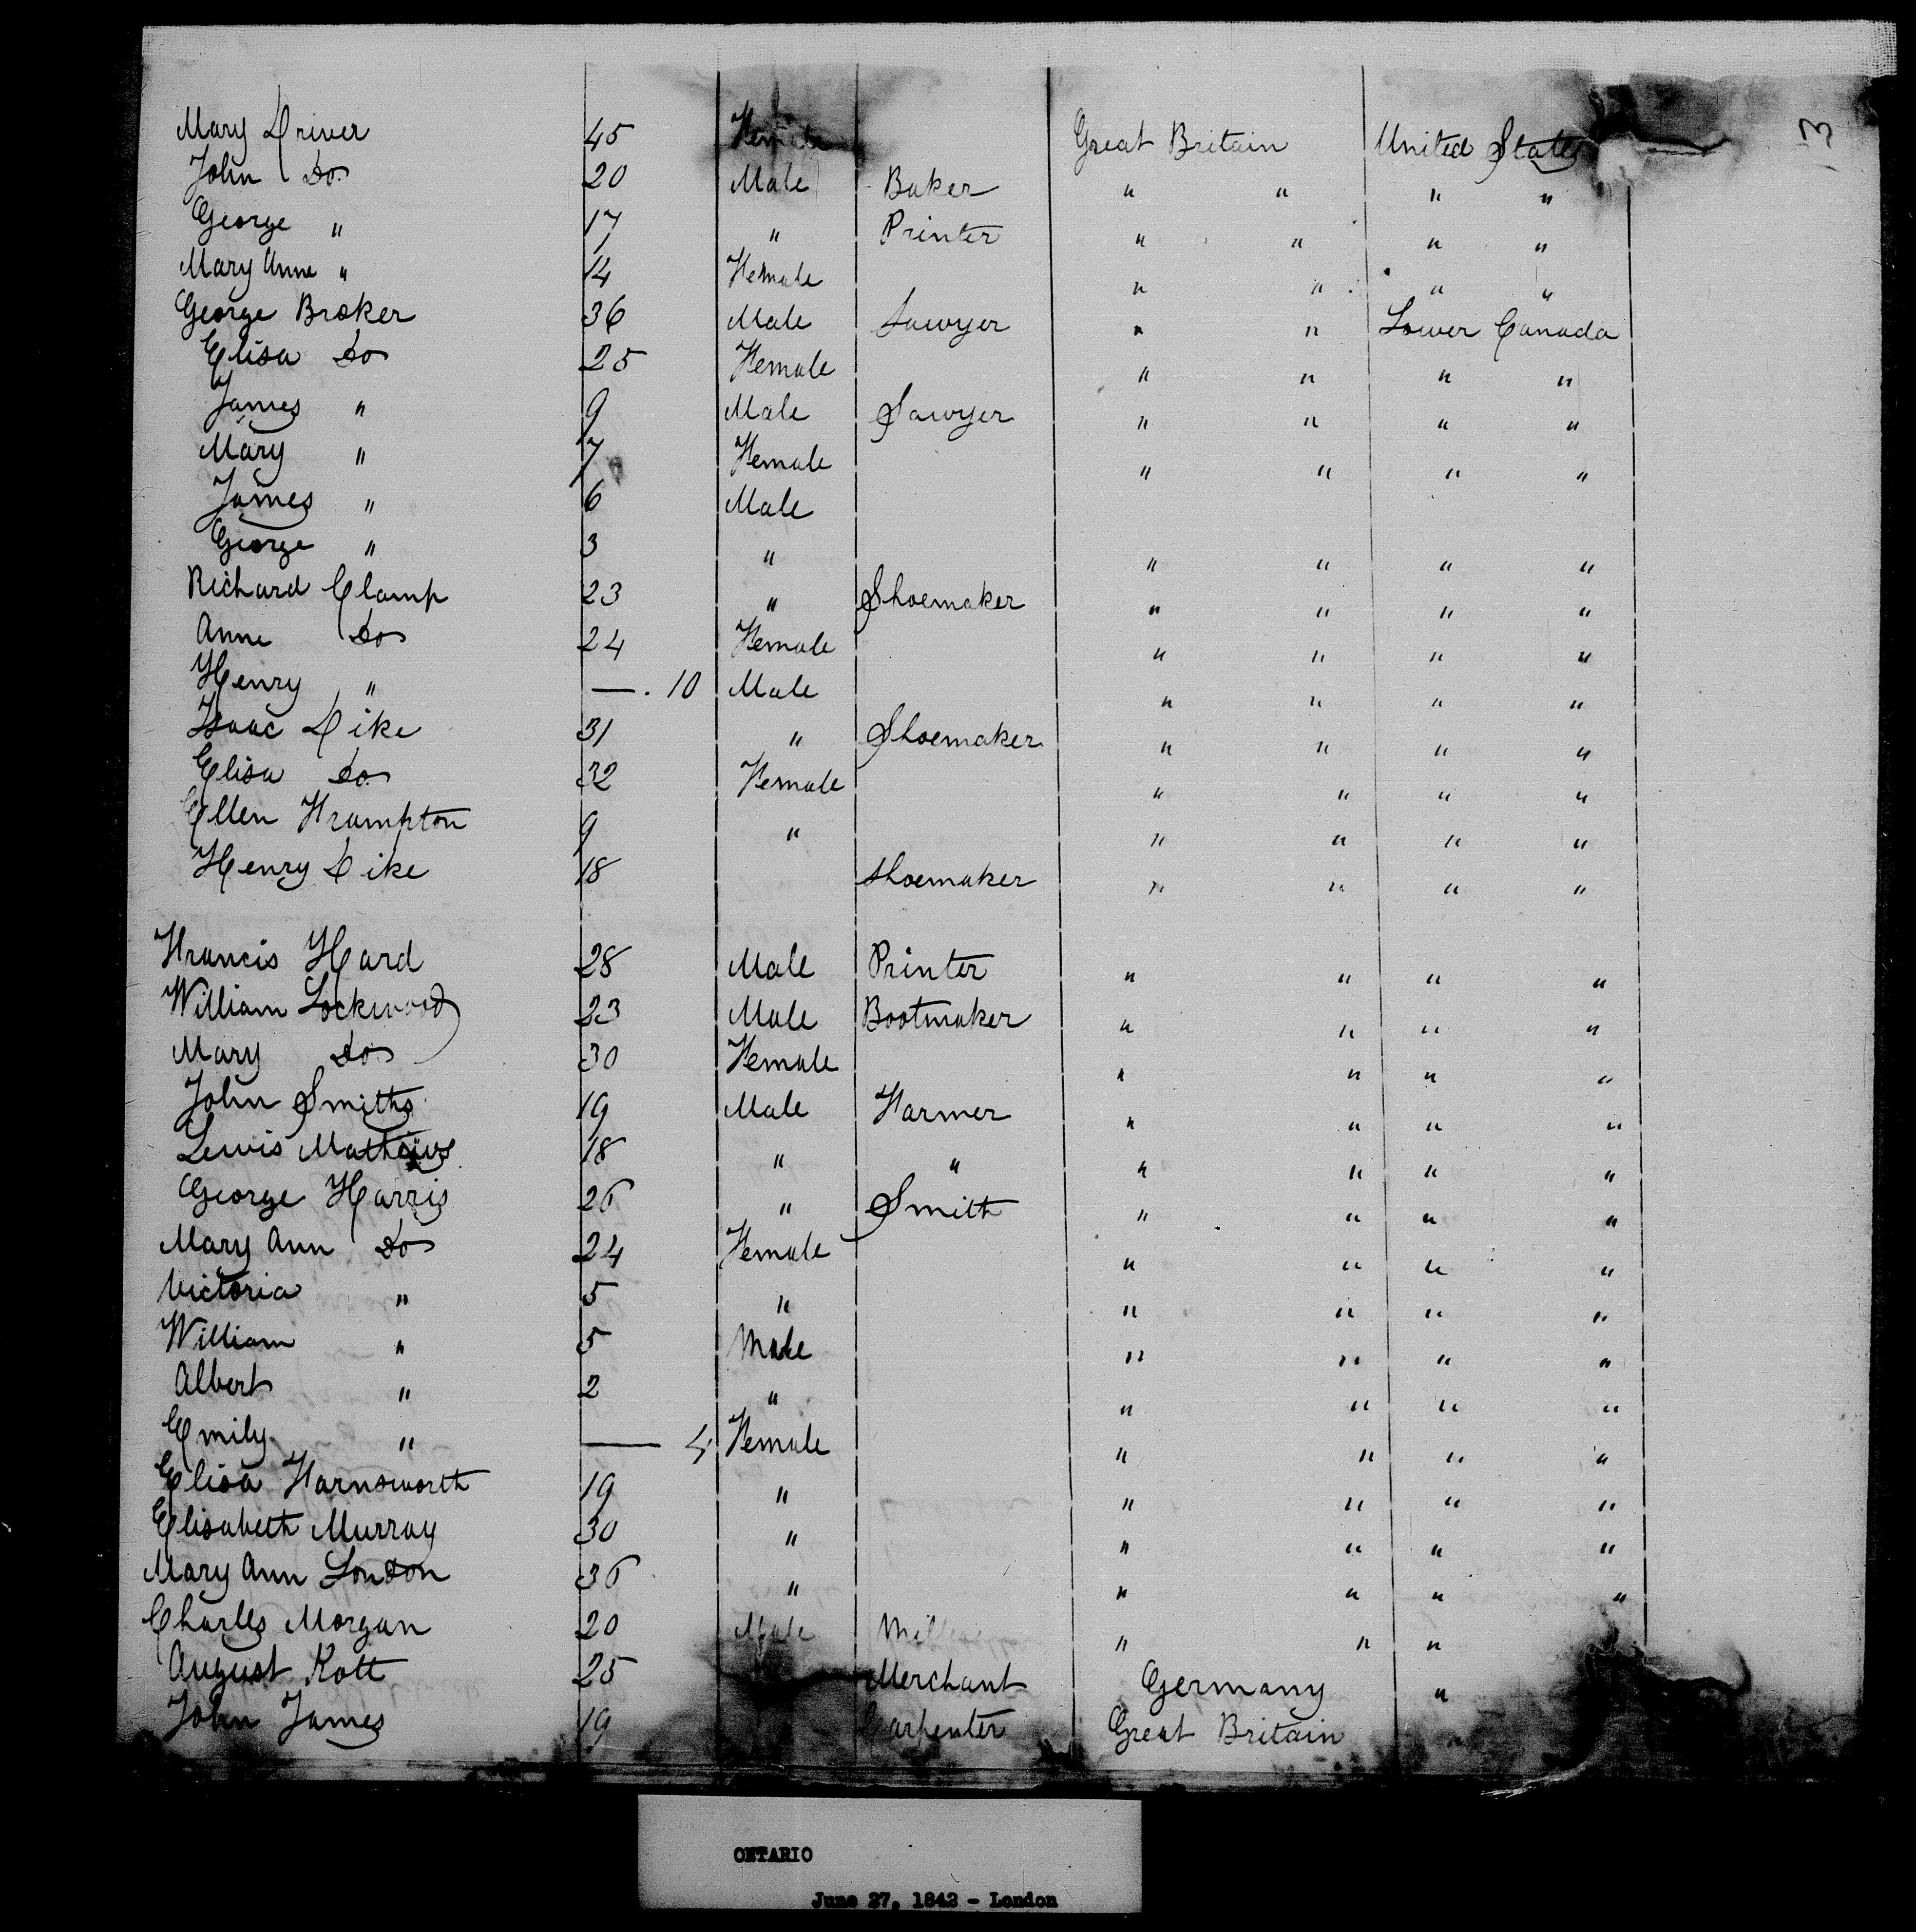 13
Mary Driver 45 Female Great Britain United States
John Do 20 Male Baker " " " "
George " 17 " Printer " " " "
Mary Anne " 14 Female " " " "
George Broker 36 Male Sawyer " " Lower Canada
Elisa Do 25 Female " " " "
James " 9 Male Sawyer " " " "
Mary " 7 Female " " " "
James " 6 Male
George " 3 " " " " "
Richard Clamp 23 " Shoemaker " " " "
Anne Do 24 Female " " " "
Henry " —. 10 Male " " " "
Isaac Dike 31 " Shoemaker " " " "
Elisa Do 32 Female " " " "
Ellen Frampton 9 " " " " "
Henry Dike 18 Shoemaker " " " "
Francis Hard 28 Male Printer " " " "
William Lockwood 23 Male Bootmaker " " " "
Mary Do 30 Female " " " "
John Smiths 19 Male Farmer " " " "
Lewis Mathews 18 " " " " " "
George Harris 26 " Smith " " " "
Mary Ann Do 24 Female " " " "
Victoria " 5 " " " " "
William " 5 Male " " " "
Albert " 2 " " " " "
Emily " — 4 Female " " " "
Elisa Farnsworth 19 " " " " "
Elisabeth Murray 30 " " " " "
Mary Ann London 36 " " " " "
Charles Morgan 20 Male " " "
August Kott 25 Merchant Germany "
John James 19 Carpenter Great Britain "
ONTARIO
June 27, 1842 - London